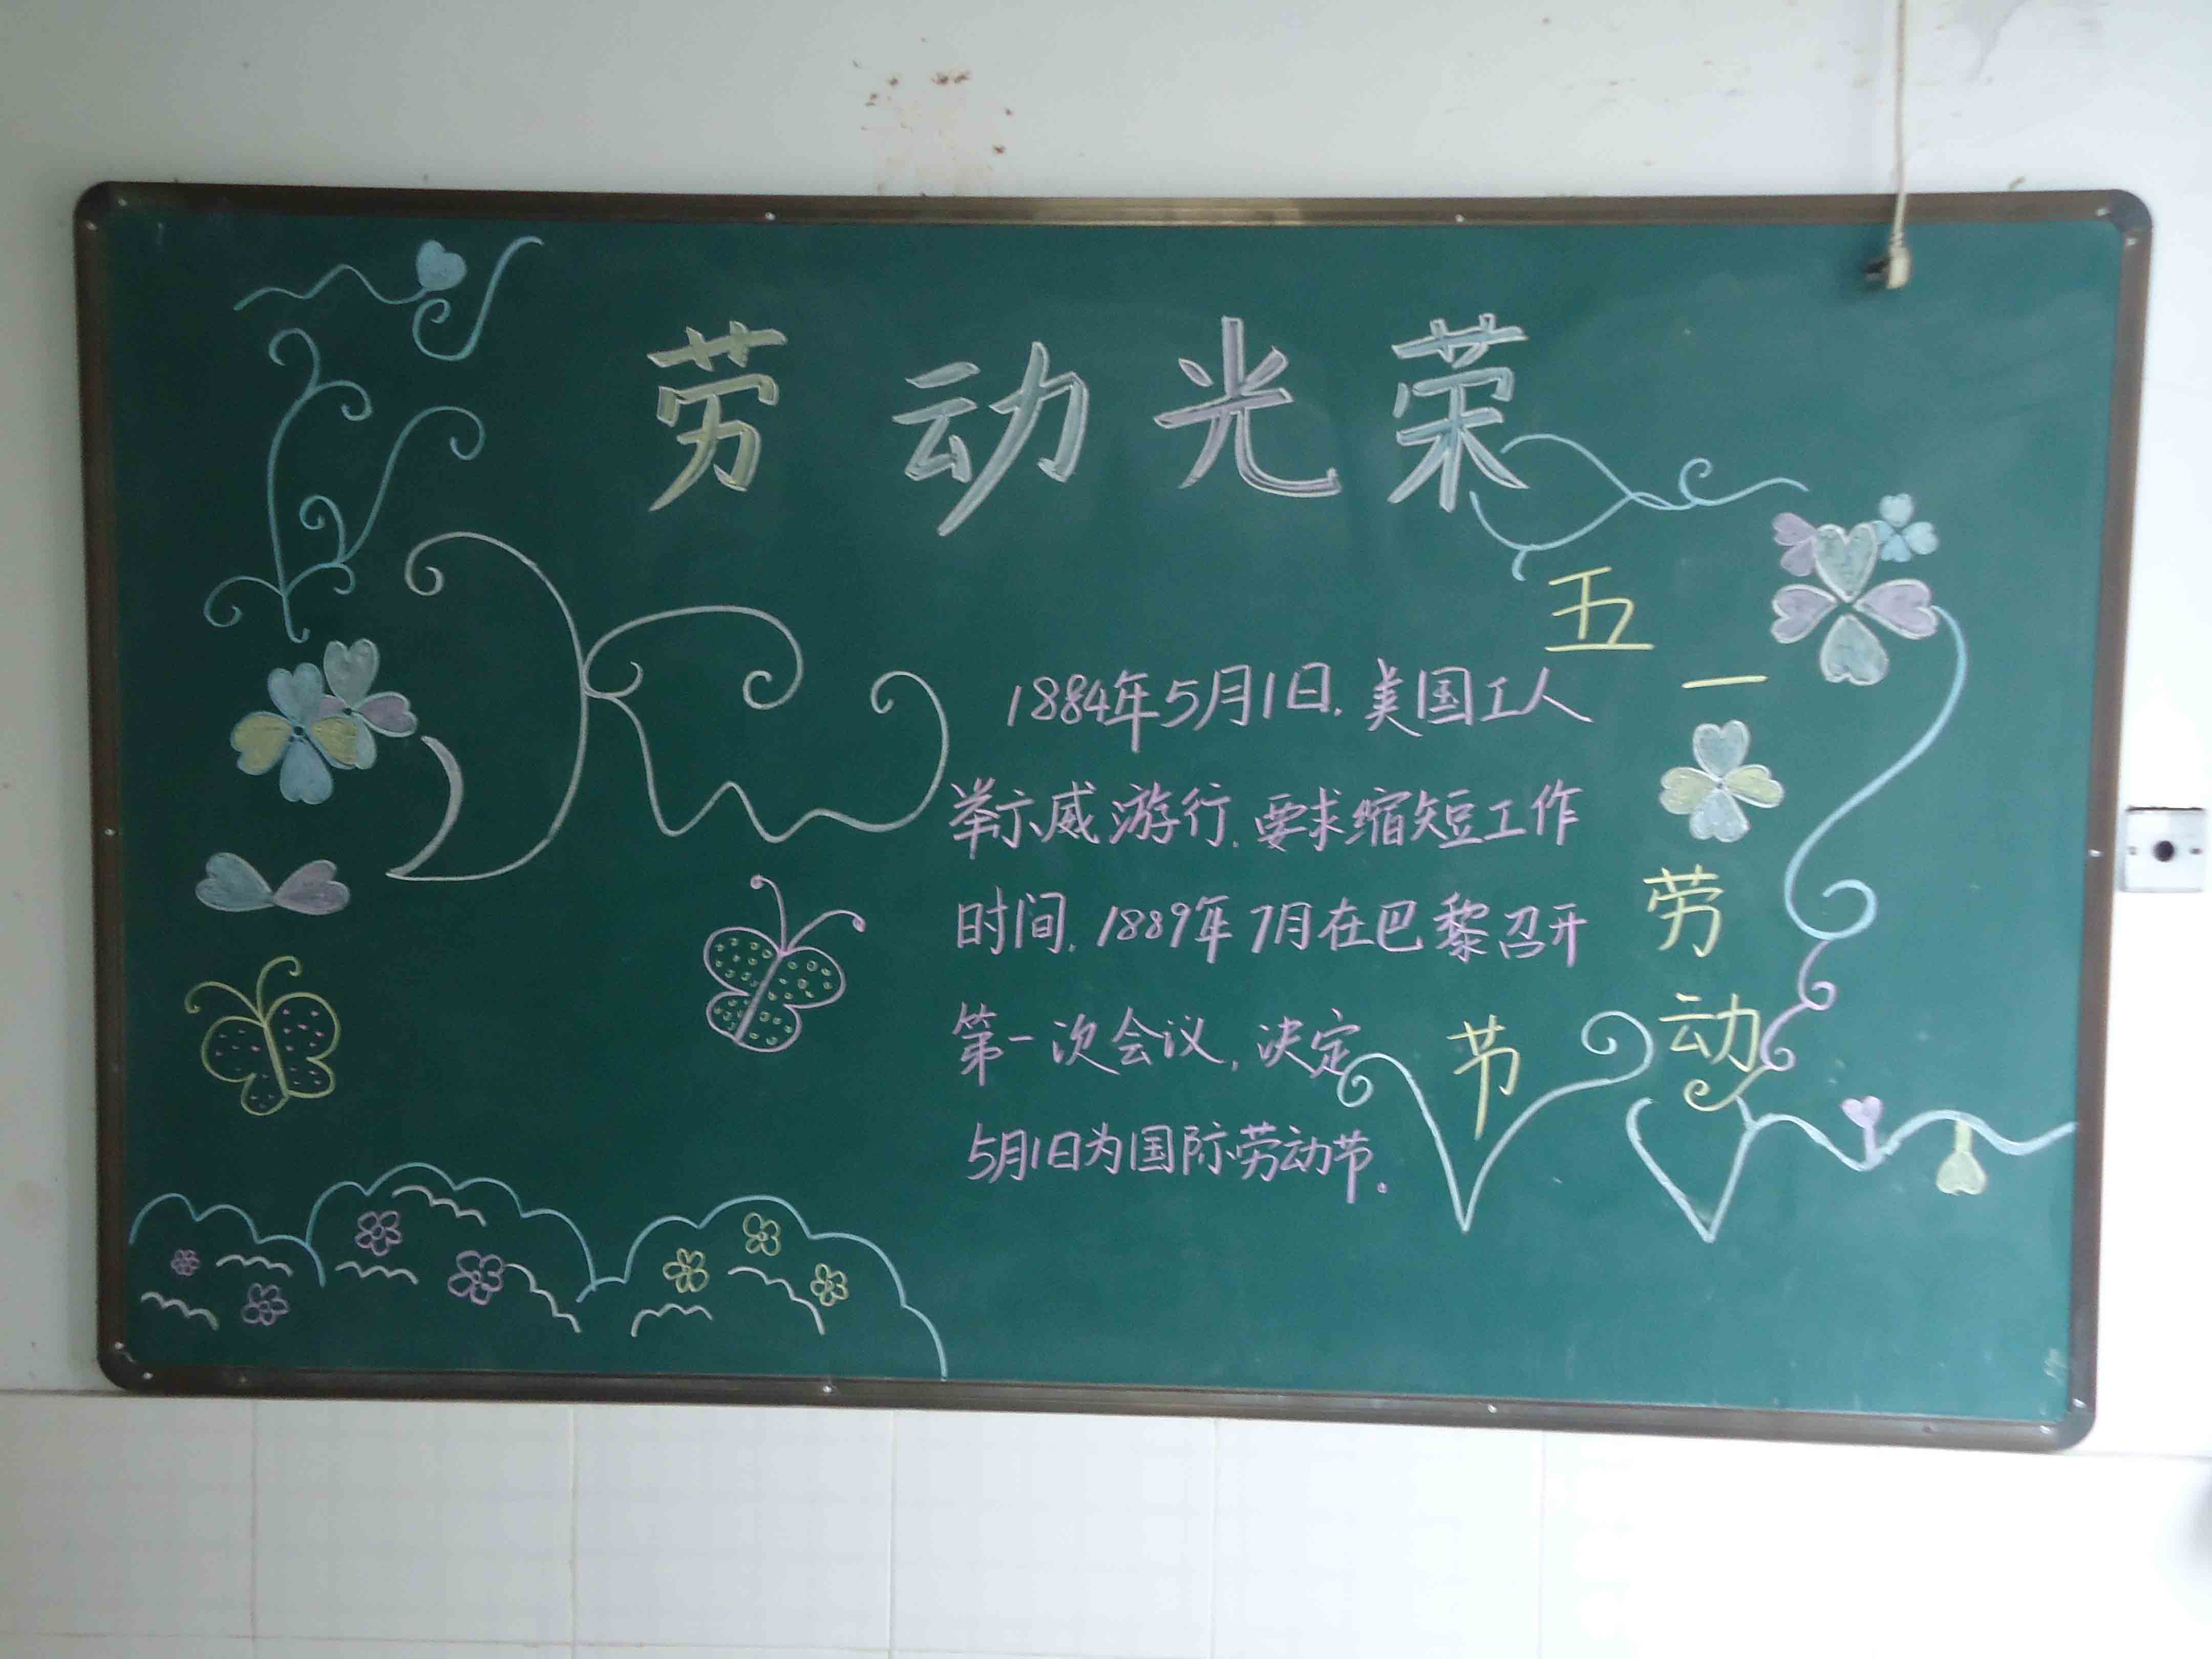 劳动光荣
五一
劳动
节
1884年5月1日.美国工人
举示威游行.要求缩短工作
时间.1889年7月在巴黎召开
第一次会议,决定
5月1日为国际劳动节.